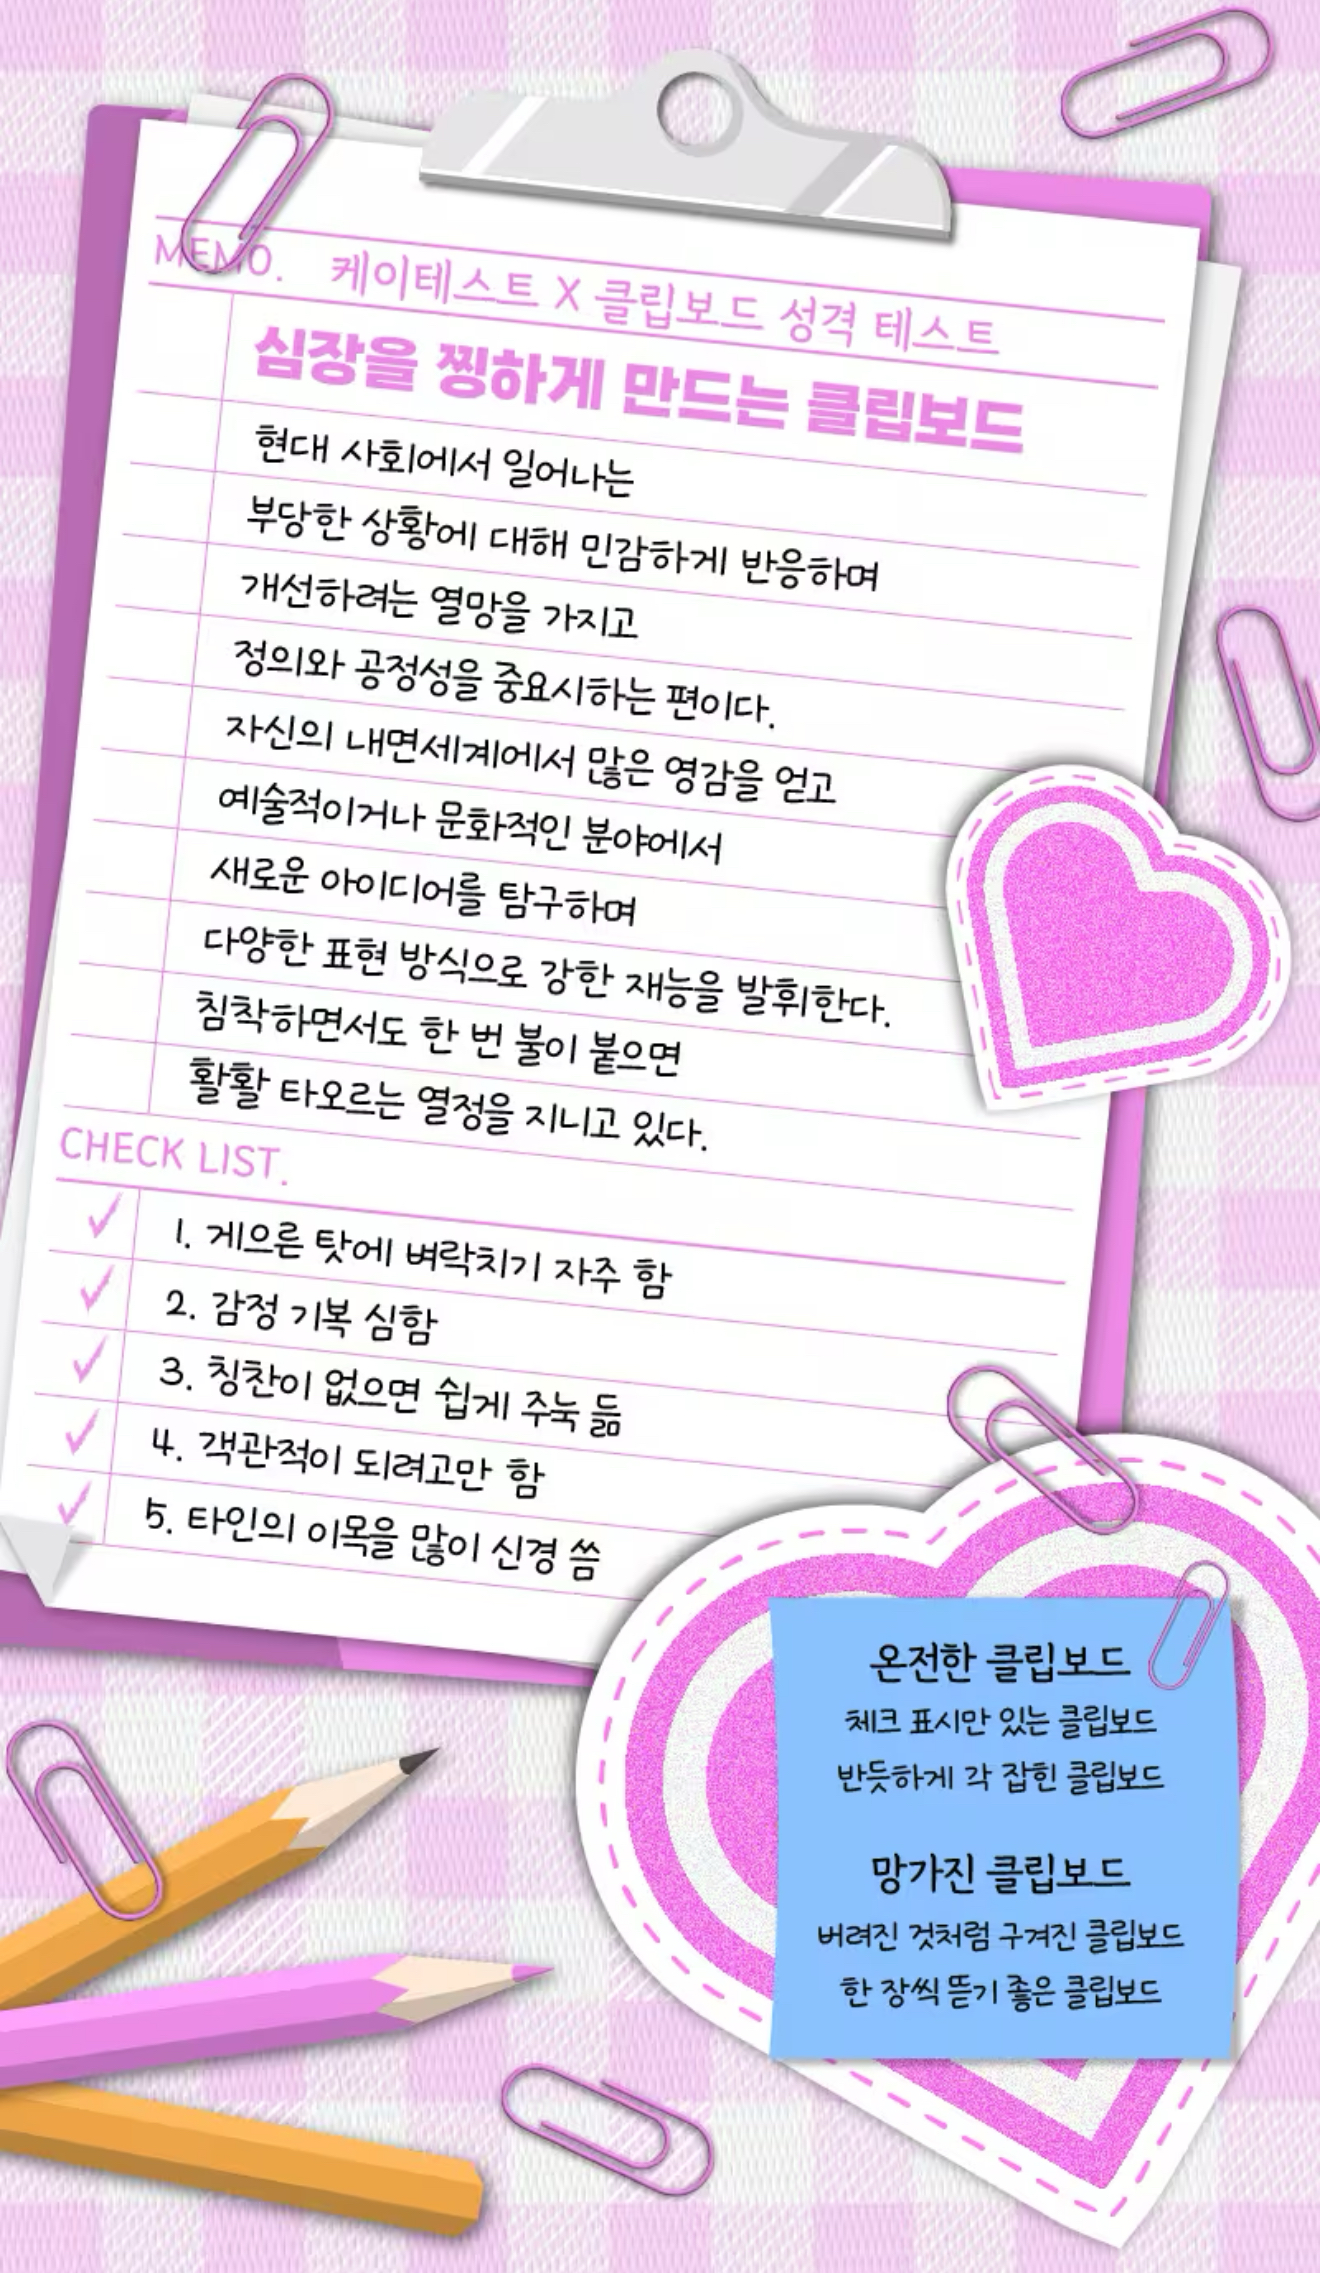 MEMO. 케이테스트 X 클립보드 성격 테스트
심장을 찡하게 만드는 클립보드
현대 사회에서 일어나는
부당한 상황에 대해 민감하게 반응하며
개선하려는 열망을 가지고
정의와 공정성을 중요시하는 편이다.
자신의 내면세계에서 많은 영감을 얻고
예술적이거나 문화적인 분야에서
새로운 아이디어를 탐구하며
다양한 표현 방식으로 강한 재능을 발휘한다.
침착하면서도 한 번 불이 붙으면
활활 타오르는 열정을 지니고 있다.
CHECK LIST.
1. 게으른 탓에 벼락치기 자주 함
2. 감정 기복 심함
3. 칭찬이 없으면 쉽게 주눅 듦
4. 객관적이 되려고만 함
5. 타인의 이목을 많이 신경 씀
온전한 클립보드
체크 표시만 있는 클립보드
반듯하게 각 잡힌 클립보드
망가진 클립보드
버려진 것처럼 구겨진 클립보드
한 장씩 뜯기 좋은 클립보드